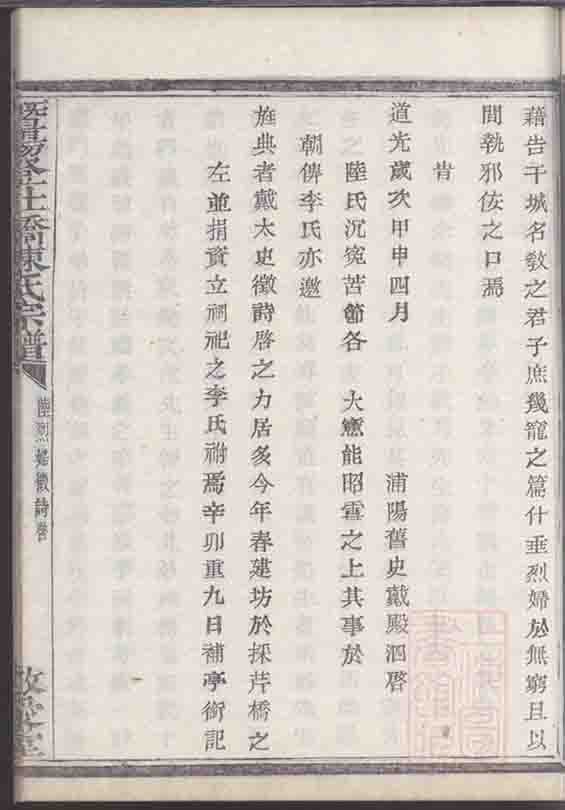 藉告干城名敎之君子庶幾寵之篇什垂烈婦於無窮且以
間執邪佞之口焉
旹
道光歲次甲申四月　浦陽舊史戴殿泗啓
陸氏沉寃苦節各大憲能昭雪之上其事於
朝俾李氏亦邀
旌典者戴太史徵詩啓之力居多今年春建坊於採芹橋之
左並捐資立祠祀之李氏祔焉辛卯重九日補亭衛記
橋陳氏宗譜
陸烈婦徵詩啓